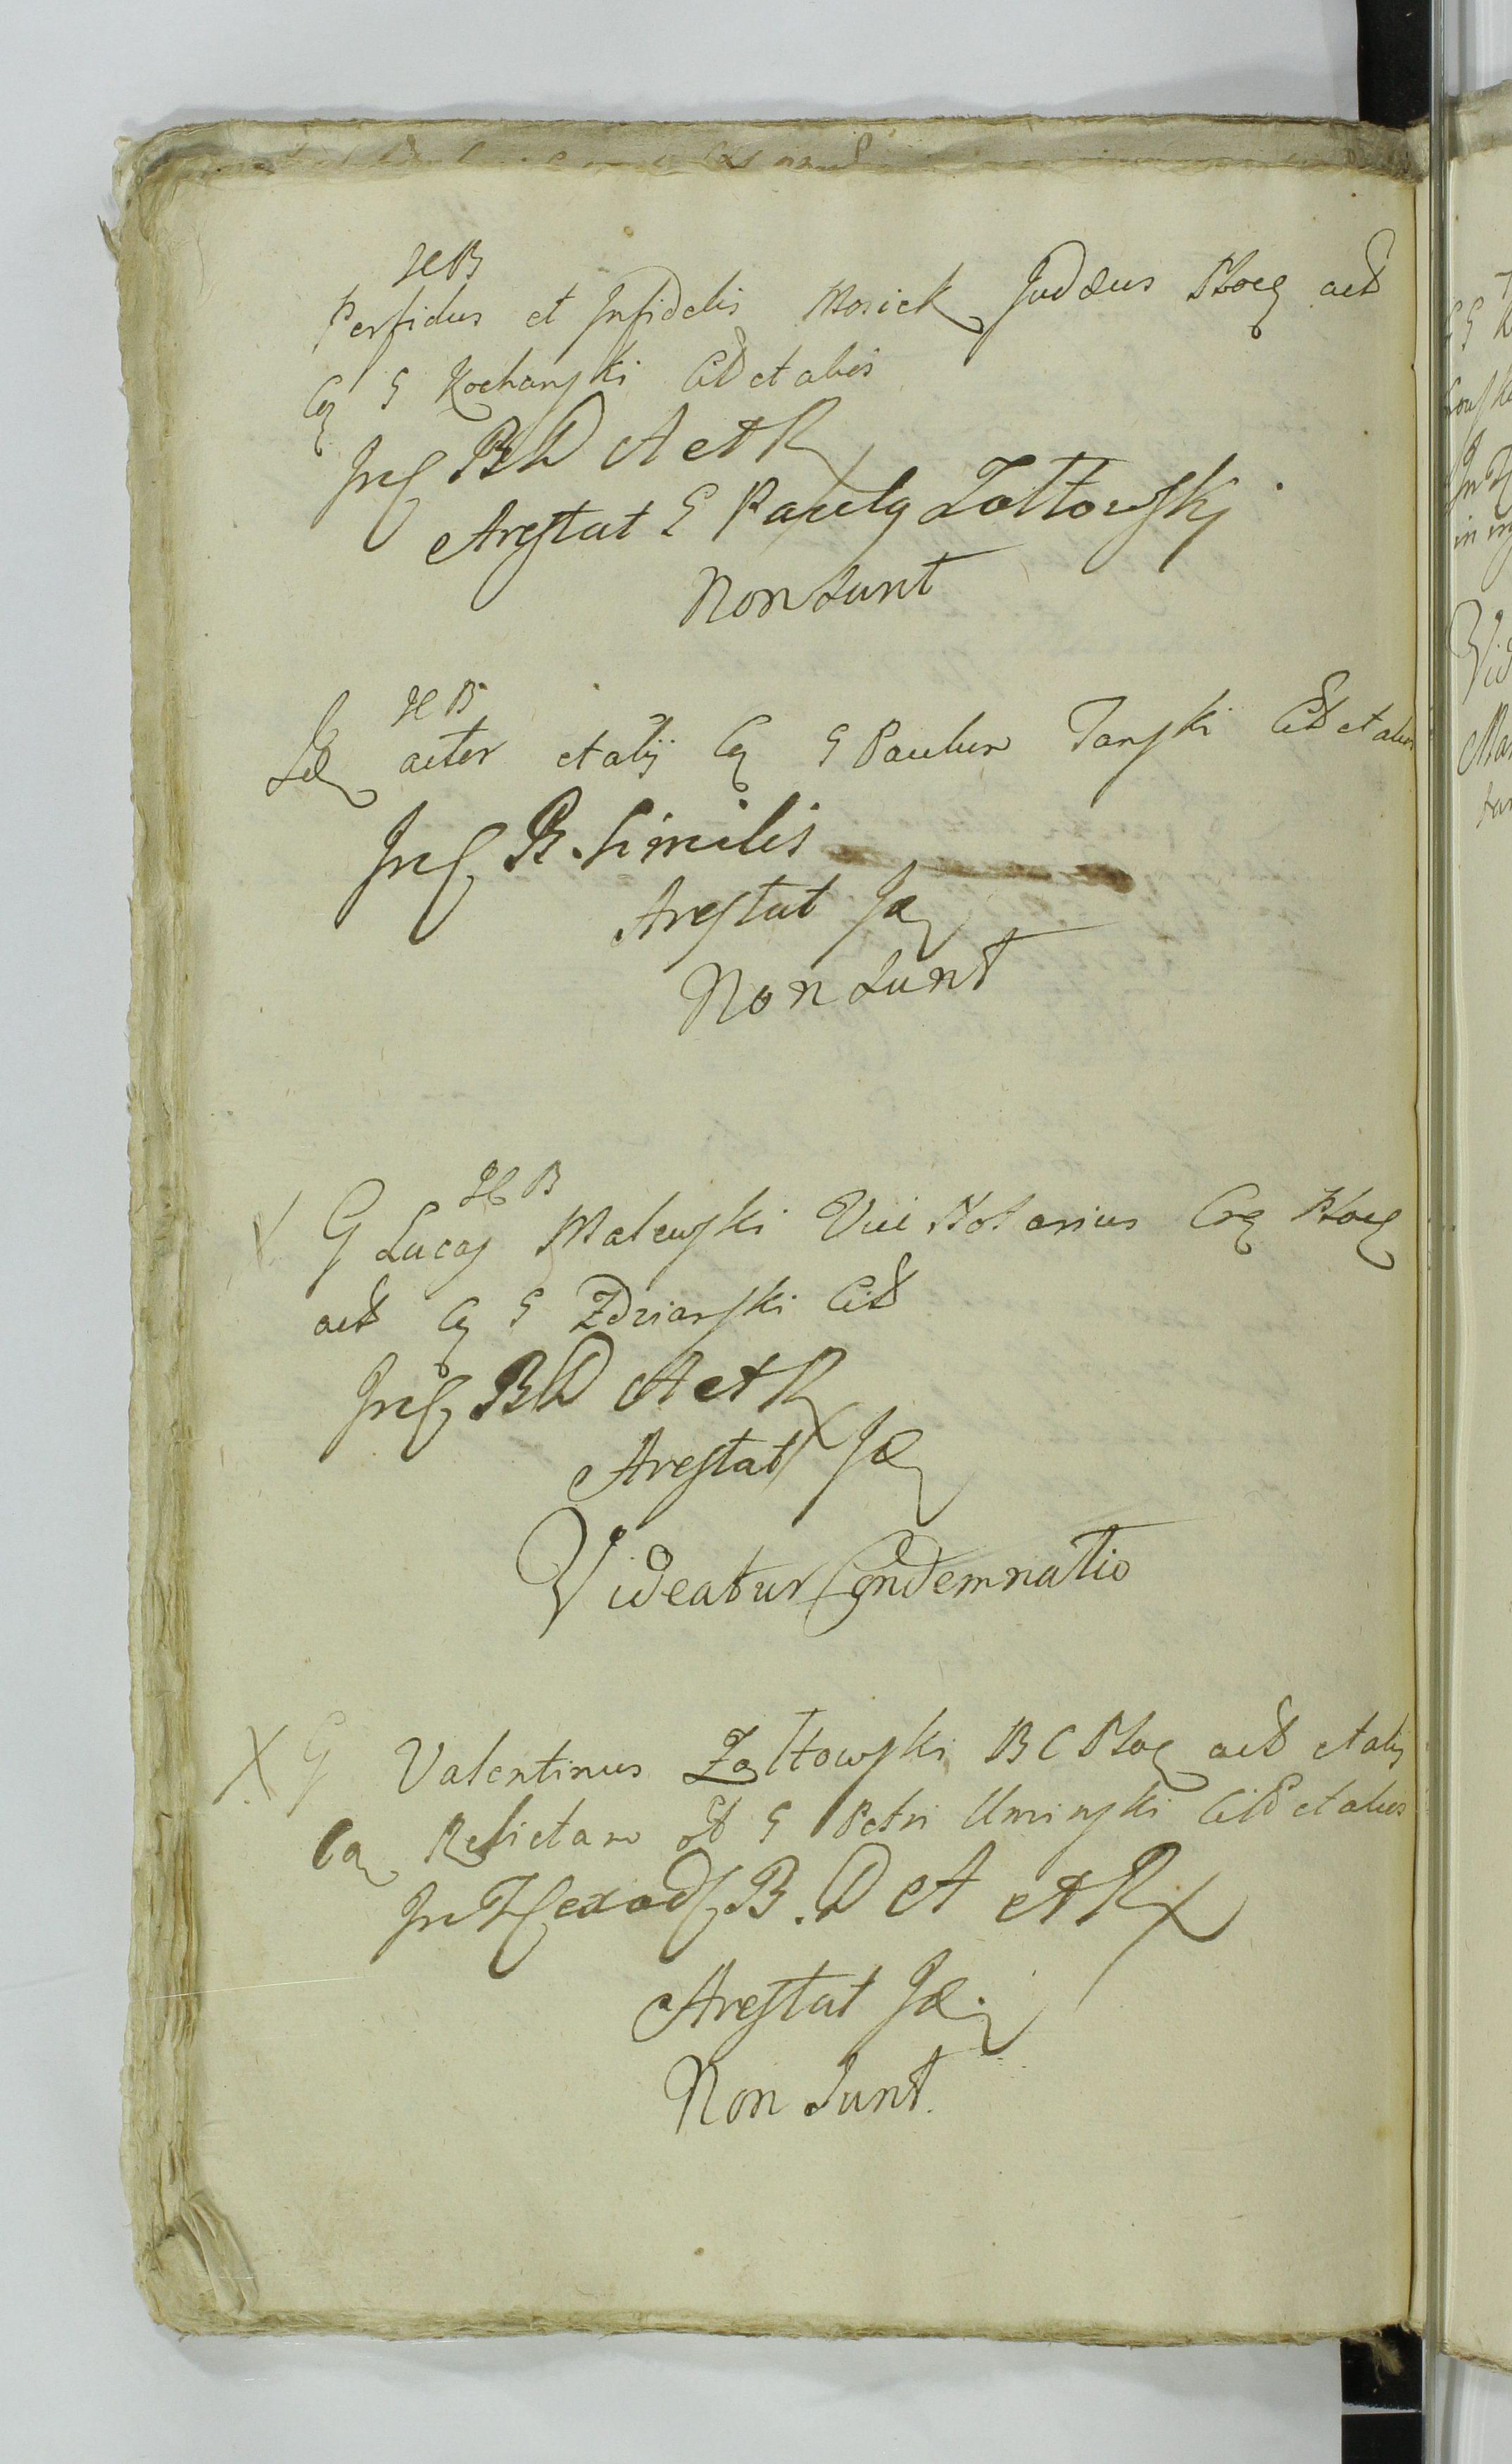 HB
Perfidus et Infidelis Mosiek Judæus Ploc act
Cq G Kochanski Cit et alios
Inf BD A et R
Arestat G Paulq Zoltowski
Non sunt
HB
Id actor et alij Cq G Paulum Tanski Cit et alios
Inf B. similis
Arestat Id
Non sunt
HB
G Lucas Malewski Vice Notarius Crq Ploc
act Cq G Zdziarski Cit
Inf BD A et R
Arestat Id
Videatur Condemnatio
X G Valentinus Zoltowski BC Ploc act et alij
Ca Relictam G Petri Uminski Cit et alios
B. D A et R
Arestat Id
Non sunt.